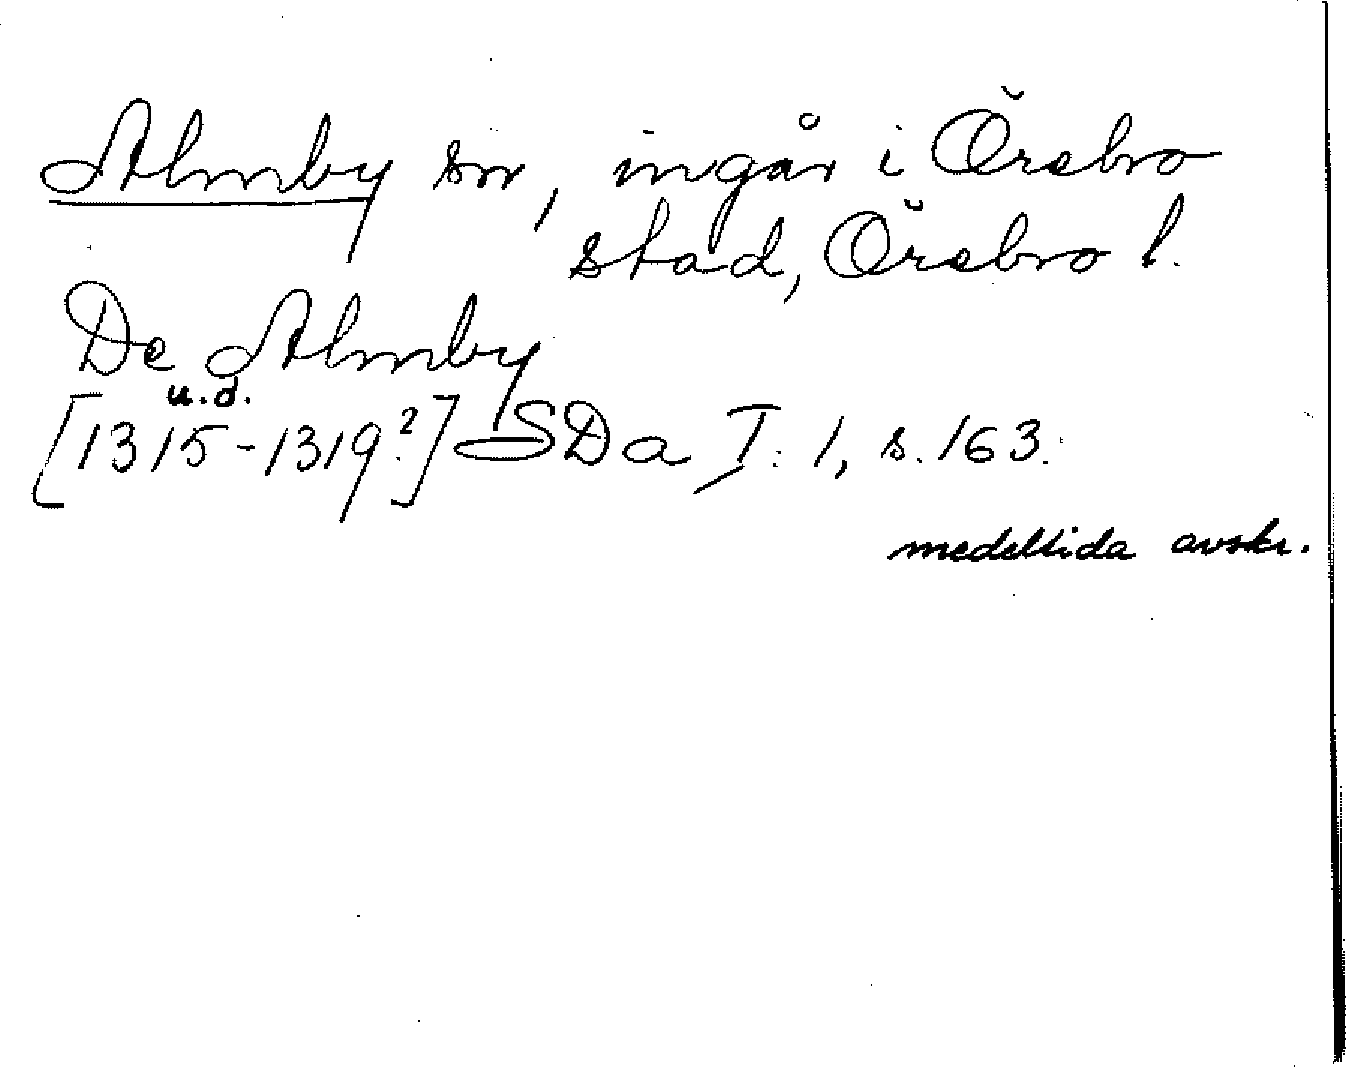 Almby sn, ingår i Örebro
stad, Örebro l.
De Almby
u.d.
[1315-1319?] SDa I: 1, s. 163.
medeltida avskr.